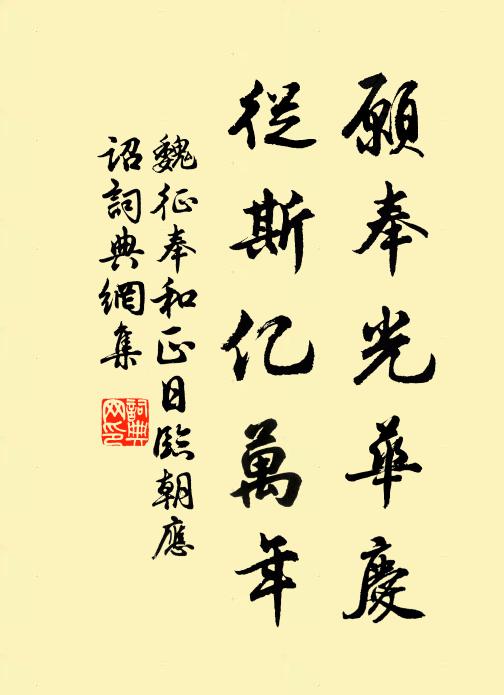 願奉光華慶
從斯亿萬年
魏征奉和正日臨朝應
詔詞典網集
詞典网印